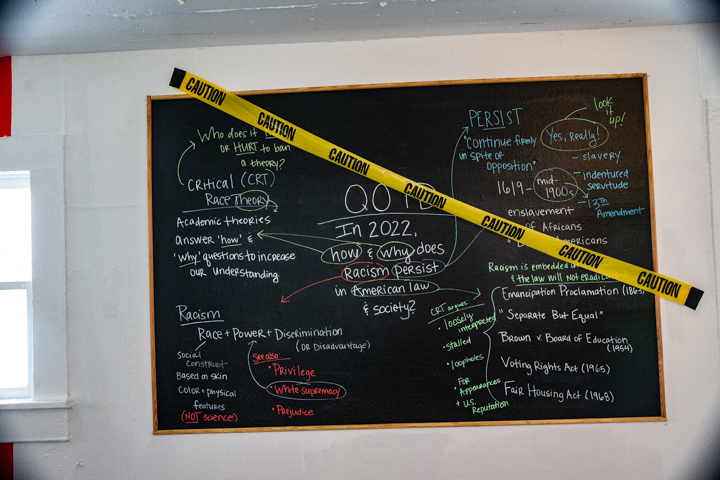 CAUTION
CAUTION
CAUTION
CAUTION
CAUTION
CAUTION
CAUTION
Who does it
OR HURT to ban
a theory?
Critical (CRT)
Race Theory
Academic theories
answer 'how' &
'why' questions to increase
our understanding
Racism
Race + Power + Discrimination
(OR Disadvantage)
Social
construct
Based on skin
color + physical
features
(NOT science!)
See also
• Privilege
• White supremacy
• Prejudice
QOTD
In 2022,
how & why does
Racism persist
in American law
& society?
PERSIST
"Continue firmly
in spite of
opposition"
look
it
up!
Yes, Really!
1619 - mid-
1900s
- slavery
- indentured
servitude
- 13th
Amendment
enslavement
of Africans
Americans
Racism is embedded
& the law will not
CRT argues:
• loosely
interpreted
• stalled
• loopholes
For
Appearances
+ U.S.
Reputation
Emancipation Proclamation
"Separate But Equal"
Brown v. Board of Education
(1954)
Voting Rights Act (1965)
Fair Housing Act (1968)